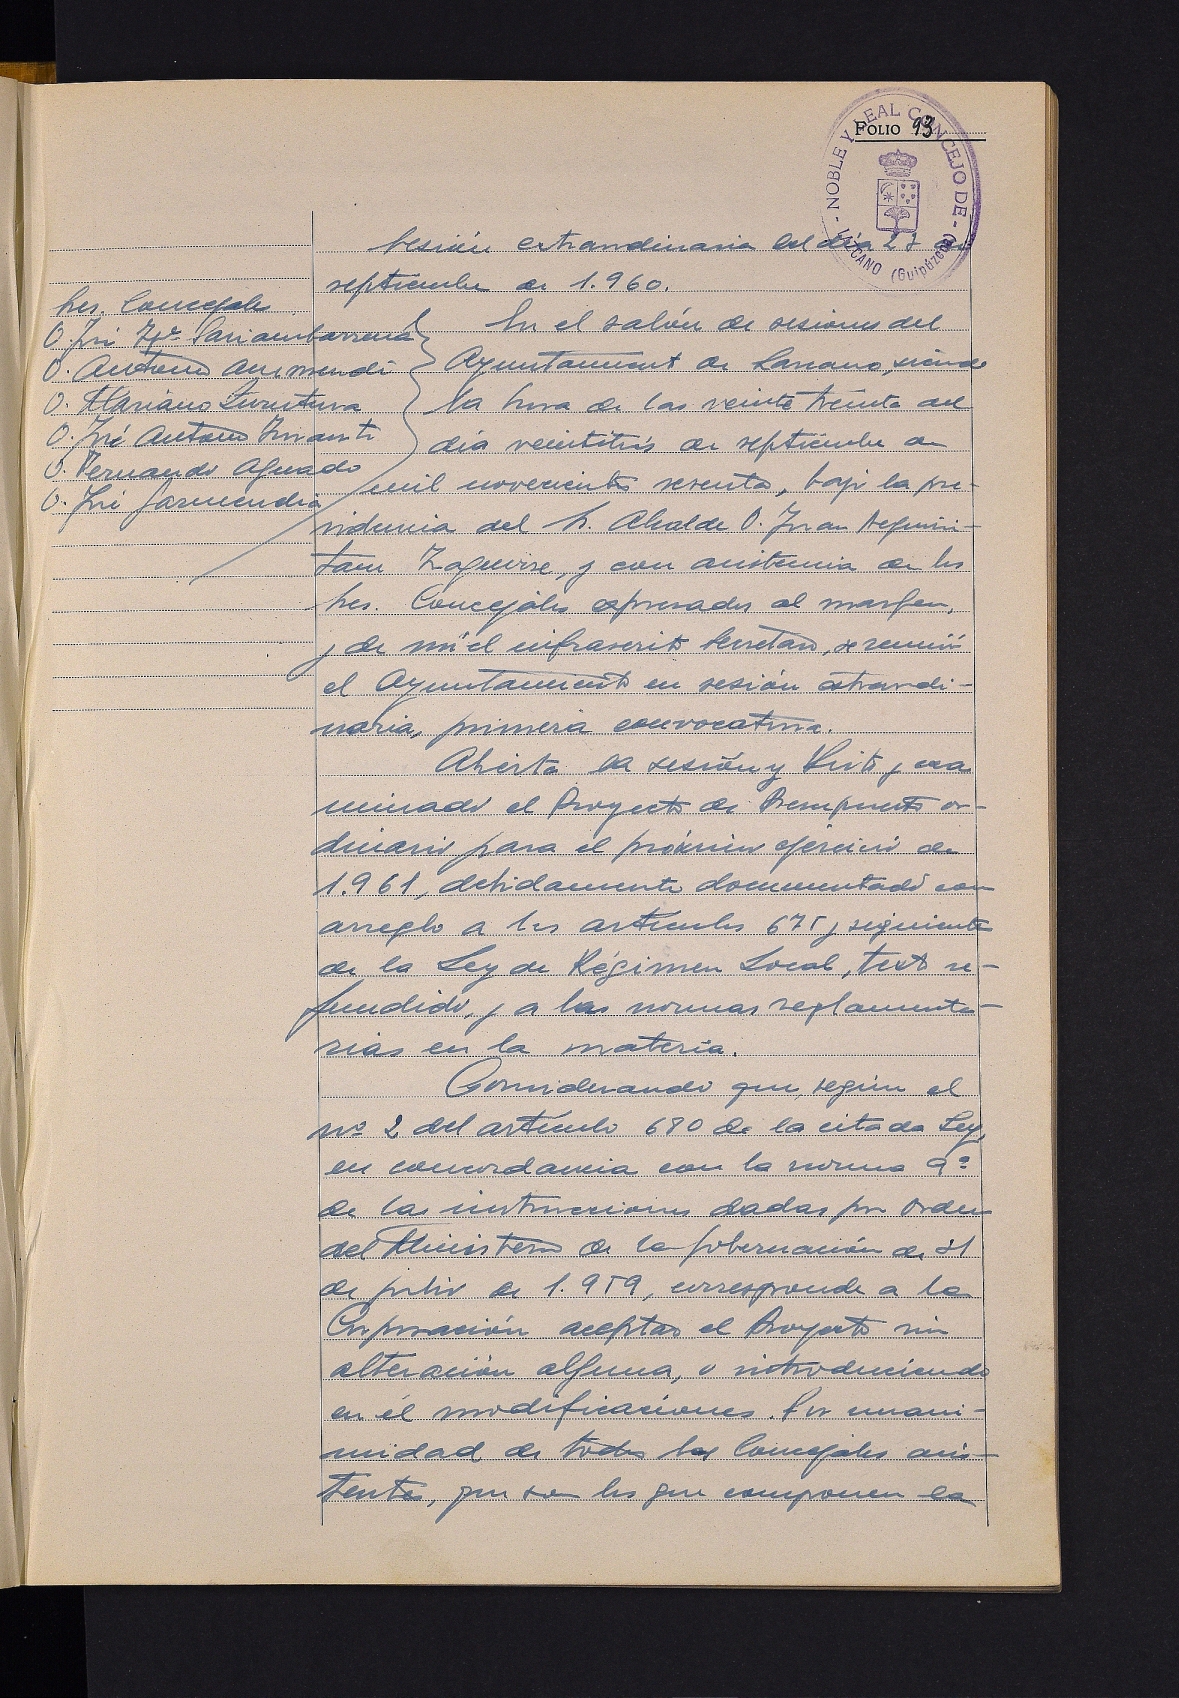 FOLIO 93
- NOBLE Y LEAL CONCEJO DE -
LAZCANO (Guipúzcoa)
Sesión extraordinaria del día 23 de
septiembre de 1.960.
Sres. Concejales
D. José Igº
D. Antonio Aurmendi
D. Mariano
D. José Antonio
D. Fernando Aguado
D. José Garmendia
En el salón de sesiones del
Ayuntamiento de Lazcano, siendo
la hora de las veinte treinta del
día veintitrés de septiembre de
mil novecientos sesenta, bajo la pre-
sidencia del Sr. Alcalde D. Juan Aeguiri-
tam Izaguirre, y con asistencia de los
Sres. Concejales expresados al margen,
y de mí el infrascrito Secretario, se reunió
el Ayuntamiento en sesión extraordi-
naria, primera convocatoria.
Abierta la sesión y visto y exa
minado el Proyecto de Presupuesto or-
dinario para el próximo ejercicio de
1.961, debidamente documentado con
arreglo a los artículos 675 y siguientes
de la Ley de Régimen Local, texto re-
fundido, y a las normas reglamenta-
rias en la materia.
Considerando que, según el
nº 2 del artículo 680 de la citada Ley,
en concordancia con la norma 9ª
de las instrucciones dadas por Orden
del Ministerio de la Gobernación de 31
de julio de 1.959, corresponde a la
Corporación aceptar el Proyecto sin
alteración alguna, o introduciendo
en él modificaciones. Por unani-
midad de todos los Concejales asis-
tentes, que son los que componen la